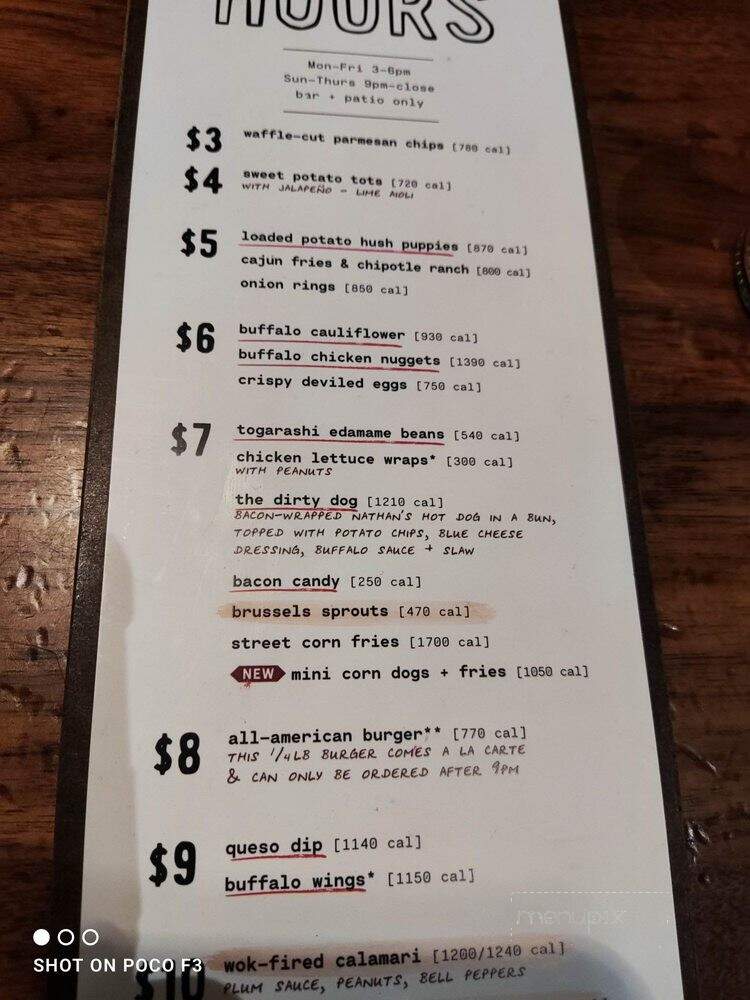 HOURS
Mon-Fri 3-6pm
Sun-Thurs 9pm-close
bar + patio only
$3 waffle-cut parmesan chips [780 cal]
$4 sweet potato tots [720 cal]
WITH JALAPEÑO - LIME AIOLI
$5 loaded potato hush puppies [870 cal]
cajun fries & chipotle ranch [800 cal]
onion rings [850 cal]
$6 buffalo cauliflower [930 cal]
buffalo chicken nuggets [1390 cal]
crispy deviled eggs [750 cal]
$7 togarashi edamame beans [540 cal]
chicken lettuce wraps* [300 cal]
WITH PEANUTS
the dirty dog [1210 cal]
BACON-WRAPPED NATHAN'S HOT DOG IN A BUN,
TOPPED WITH POTATO CHIPS, BLUE CHEESE
DRESSING, BUFFALO SAUCE + SLAW
bacon candy [250 cal]
brussels sprouts [470 cal]
street corn fries [1700 cal]
NEW mini corn dogs + fries [1050 cal]
$8 all-american burger** [770 cal]
THIS 1/4LB BURGER COMES A LA CARTE
& CAN ONLY BE ORDERED AFTER 9PM
$9 queso dip [1140 cal]
buffalo wings* [1150 cal]
menupix
$10 wok-fired calamari [1200/1240 cal]
PLUM SAUCE, PEANUTS, BELL PEPPERS
SHOT ON POCO F3